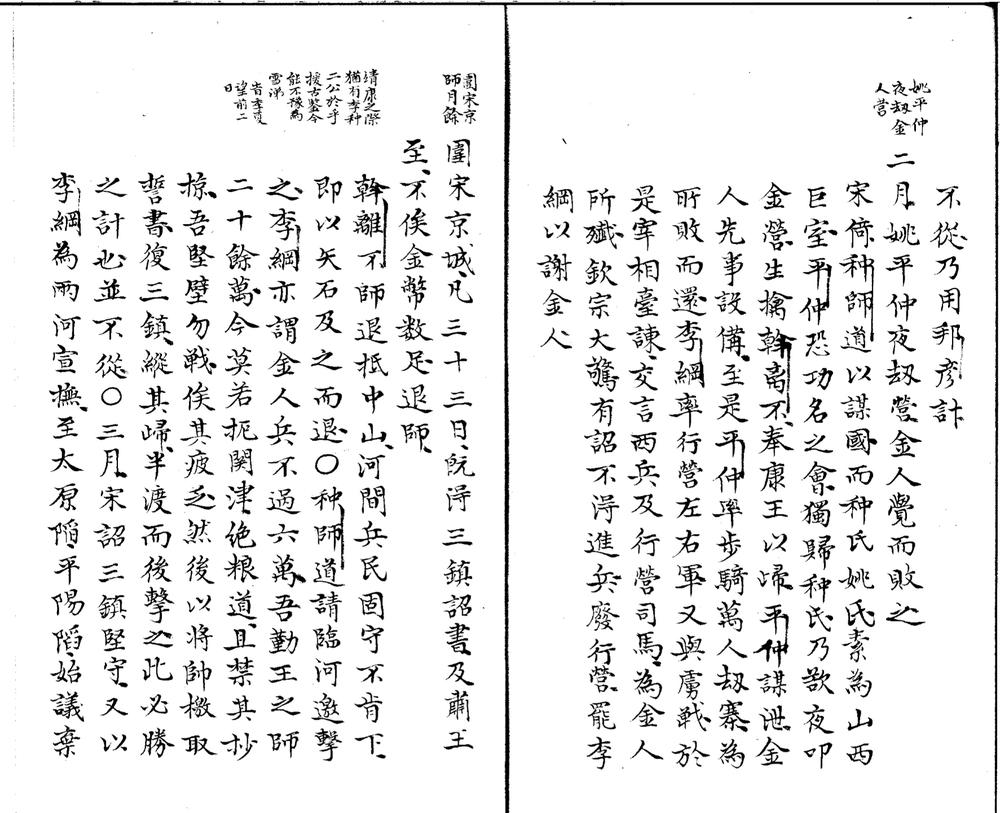 不從乃用邦彦計
姚平仲
夜刼金
人營
二月姚平仲夜刼營金人覺而敗之
宋倚种師道以謀國而种氏姚氏素為山西
巨室平仲恐功名之會獨歸种氏乃欲夜叩
金營生擒斡离不奉康王以歸平仲謀泄金
人先事設備至是平仲率步騎萬人刼寨為
所敗而還李綱率行營左右軍又與虜戰於
是宰相臺諫交言西兵及行營司馬為金人
所殱欽宗大驚有詔不得進兵廢行營罷李
綱以謝金人
圍宋京
師月餘
圍宋京城凡三十三日既得三鎮詔書及肅王
至不俟金幣数足退師
靖康之際
猶有李种
二公於乎
援古鑒今
能不豫為
雪涕
斡離不師退抵中山河間兵民固守不肯下
即以矢石及之而退〇种師道請臨河邀擊
之李綱亦謂金人兵不過六萬吾勤王之師
二十餘萬今莫若扼関津绝粮道且禁其抄
掠吾堅壁勿戰俟其疲乏然後以将帥檄取
誓書復三鎮縱其歸半渡而後擊之此必勝
之計也並不從〇三月宋詔三鎮堅守又以
李綱為兩河宣撫至太原陷平陽陷始議棄